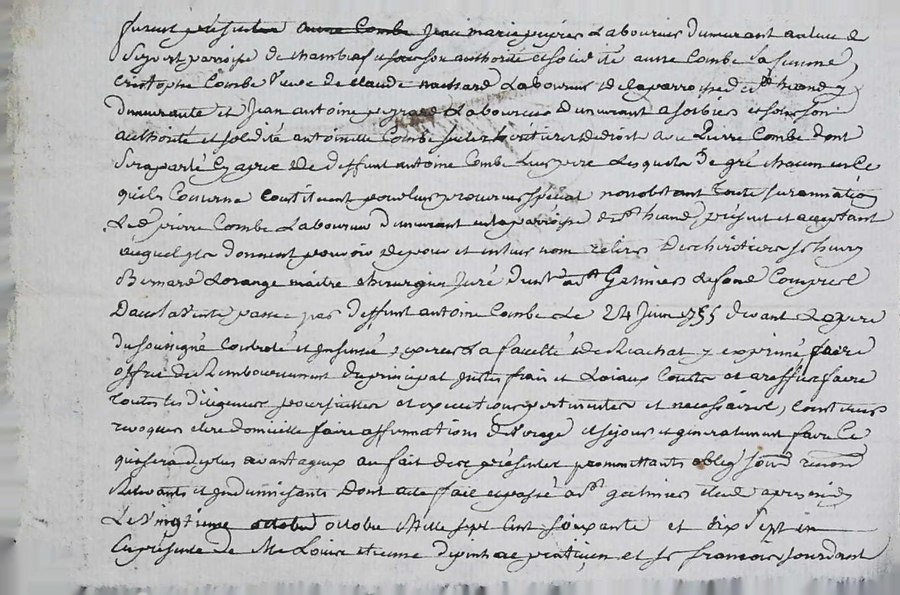 furent présents Jean marie Laboureur Demeurant au lieu de
parroisse de chambeuf sous son authorité et solidité anne Combe sa femme,
Cristophe Combe veuve de claude Laboureur de la parroisse de
Demeurante et Jean antoine Laboureur Demeurant a Sorbiers et sous son
authorité et solidité antoinette Combe heritieres de droit avec Pierre Combe dont
Sera parlé Cy apres De deffunt antoine Combe Leur pere Lesquels De gré chacun en ce
qui les Concerne Constituent pour leur procureur special nonobstant toute surannation
Led pierre Combe Laboureur Demeurant en la parroisse de présent et acceptant
auquel ils donnent pouvoir de pour et en leur nom retirer Des heritiers Sr
Bernard Lorange maitre chirurgien Juré de st Galmier Le fond Compris
Dans la vente passée par deffunt antoine Combe Le 24 Juin 1755 devant Le pere
du soussigné Controlé et Insinué, La faculté de Reachat y exprimé, faire
offre de Remboursement du principal Justes frais et Loiaux Couts et a reffus faire
toutes les diligences poursuittes et executions pertinentes et necessaires, Constituer
revoquer elire domicille faire affirmations de voyage et sejour et generalement faire Ce
qui sera de plus avantageux au fait des présentes promettants oblig
Relevants et Indemnisants Dont acte fait et passé a st galmier etude apres midy
Le Vingtieme octobre Mille sept Cent soixante et dix Sept en
La présence de Me Louis etienne praticien et Sr francois Jourdant